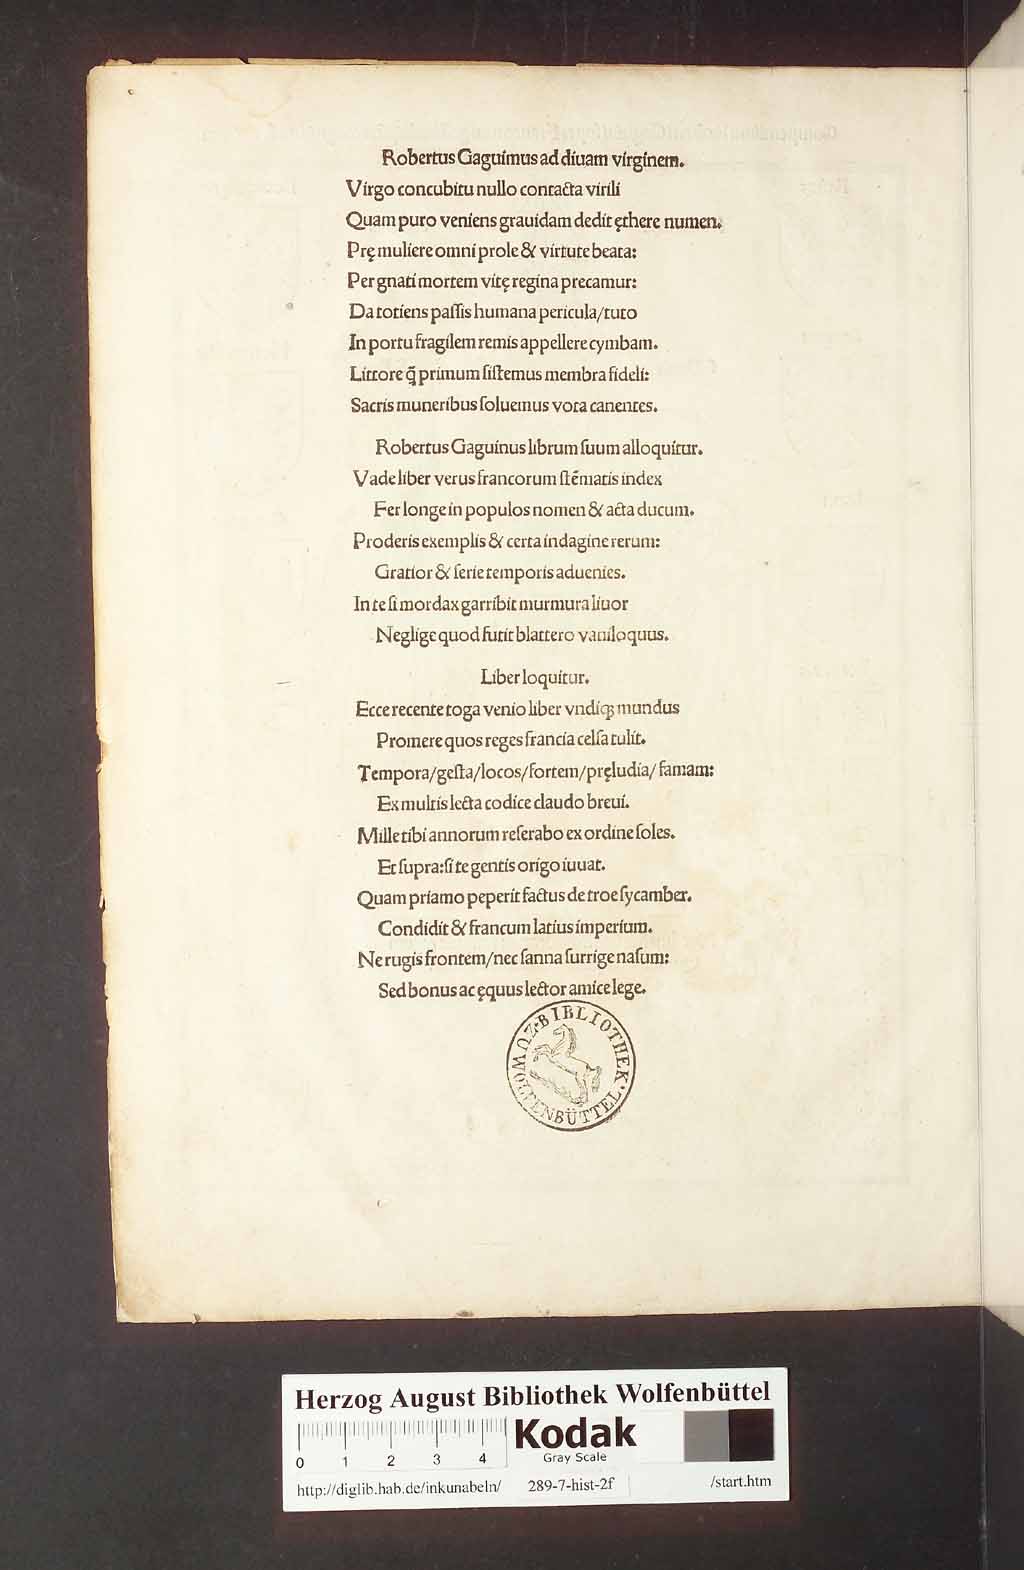 Robertus Gaguimus ad diuam virginem.
Virgo concubitu nullo contacta virili
Quam puro veniens grauidam dedit ęthere numen.
Prę muliere omni prole & virtute beata:
Per gnati mortem vitę regina precamur:
Da totiens paſſis humana pericula/tuto
In portu fragilem remis appellere cymbam.
Littore q̃ primum ſiſtemus membra fideli:
Sacris muneribus ſoluemus vota canentes.
Robertus Gaguinus librum ſuum alloquitur.
Vade liber verus francorum ſtēmatis index
Fer longe in populos nomen & acta ducum.
Proderis exemplis & certa indagine rerum:
Gratior & ſerie temporis aduenies.
In te ſi mordax garribit murmura liuor
Neglige quod futit blattero vaniloquus.
Liber loquitur.
Ecce recente toga venio liber vndiqꝫ mundus
Promere quos reges francia celſa tulit.
Tempora/geſta/locos/ſortem/pręludia/famam:
Ex multis lecta codice claudo breui.
Mille tibi annorum reſerabo ex ordine ſoles.
Et ſupra:ſi te gentis origo iuuat.
Quam priamo peperit factus de troe ſycamber.
Condidit & francum latius imperium.
Ne rugis frontem/nec ſanna ſurrige naſum:
Sed bonus ac ęquus lector amice lege.
BIBLIOTHEK. ZU WOLFENBÜTTEL.
Herzog August Bibliothek Wolfenbüttel
0 1 2 3 4
Kodak
Gray Scale
http://diglib.hab.de/inkunabeln/ 289-7-hist-2f /start.htm